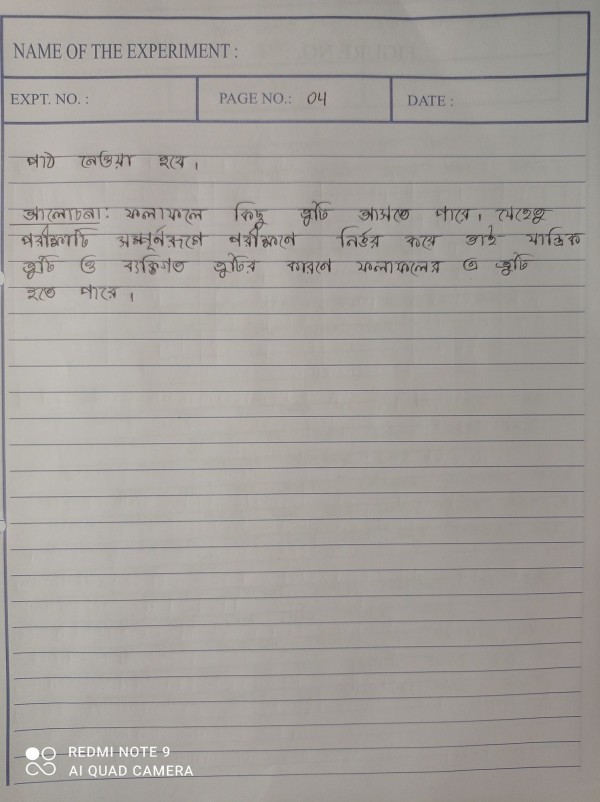 NAME OF THE EXPERIMENT :
EXPT. NO. : PAGE NO.: 04 DATE :
পাঠ নেওয়া হবে।
আলোচনা: ফলাফলে কিছু ত্রুটি আসতে পারে। যেহেতু
পরীক্ষাটি সম্পূর্নরূপে পরীক্ষণে নির্ভর করে তাই যান্ত্রিক
ত্রুটি ও ব্যক্তিগত ত্রুটির কারণে ফলাফলের এ ত্রুটি
হতে পারে।
REDMI NOTE 9
AI QUAD CAMERA